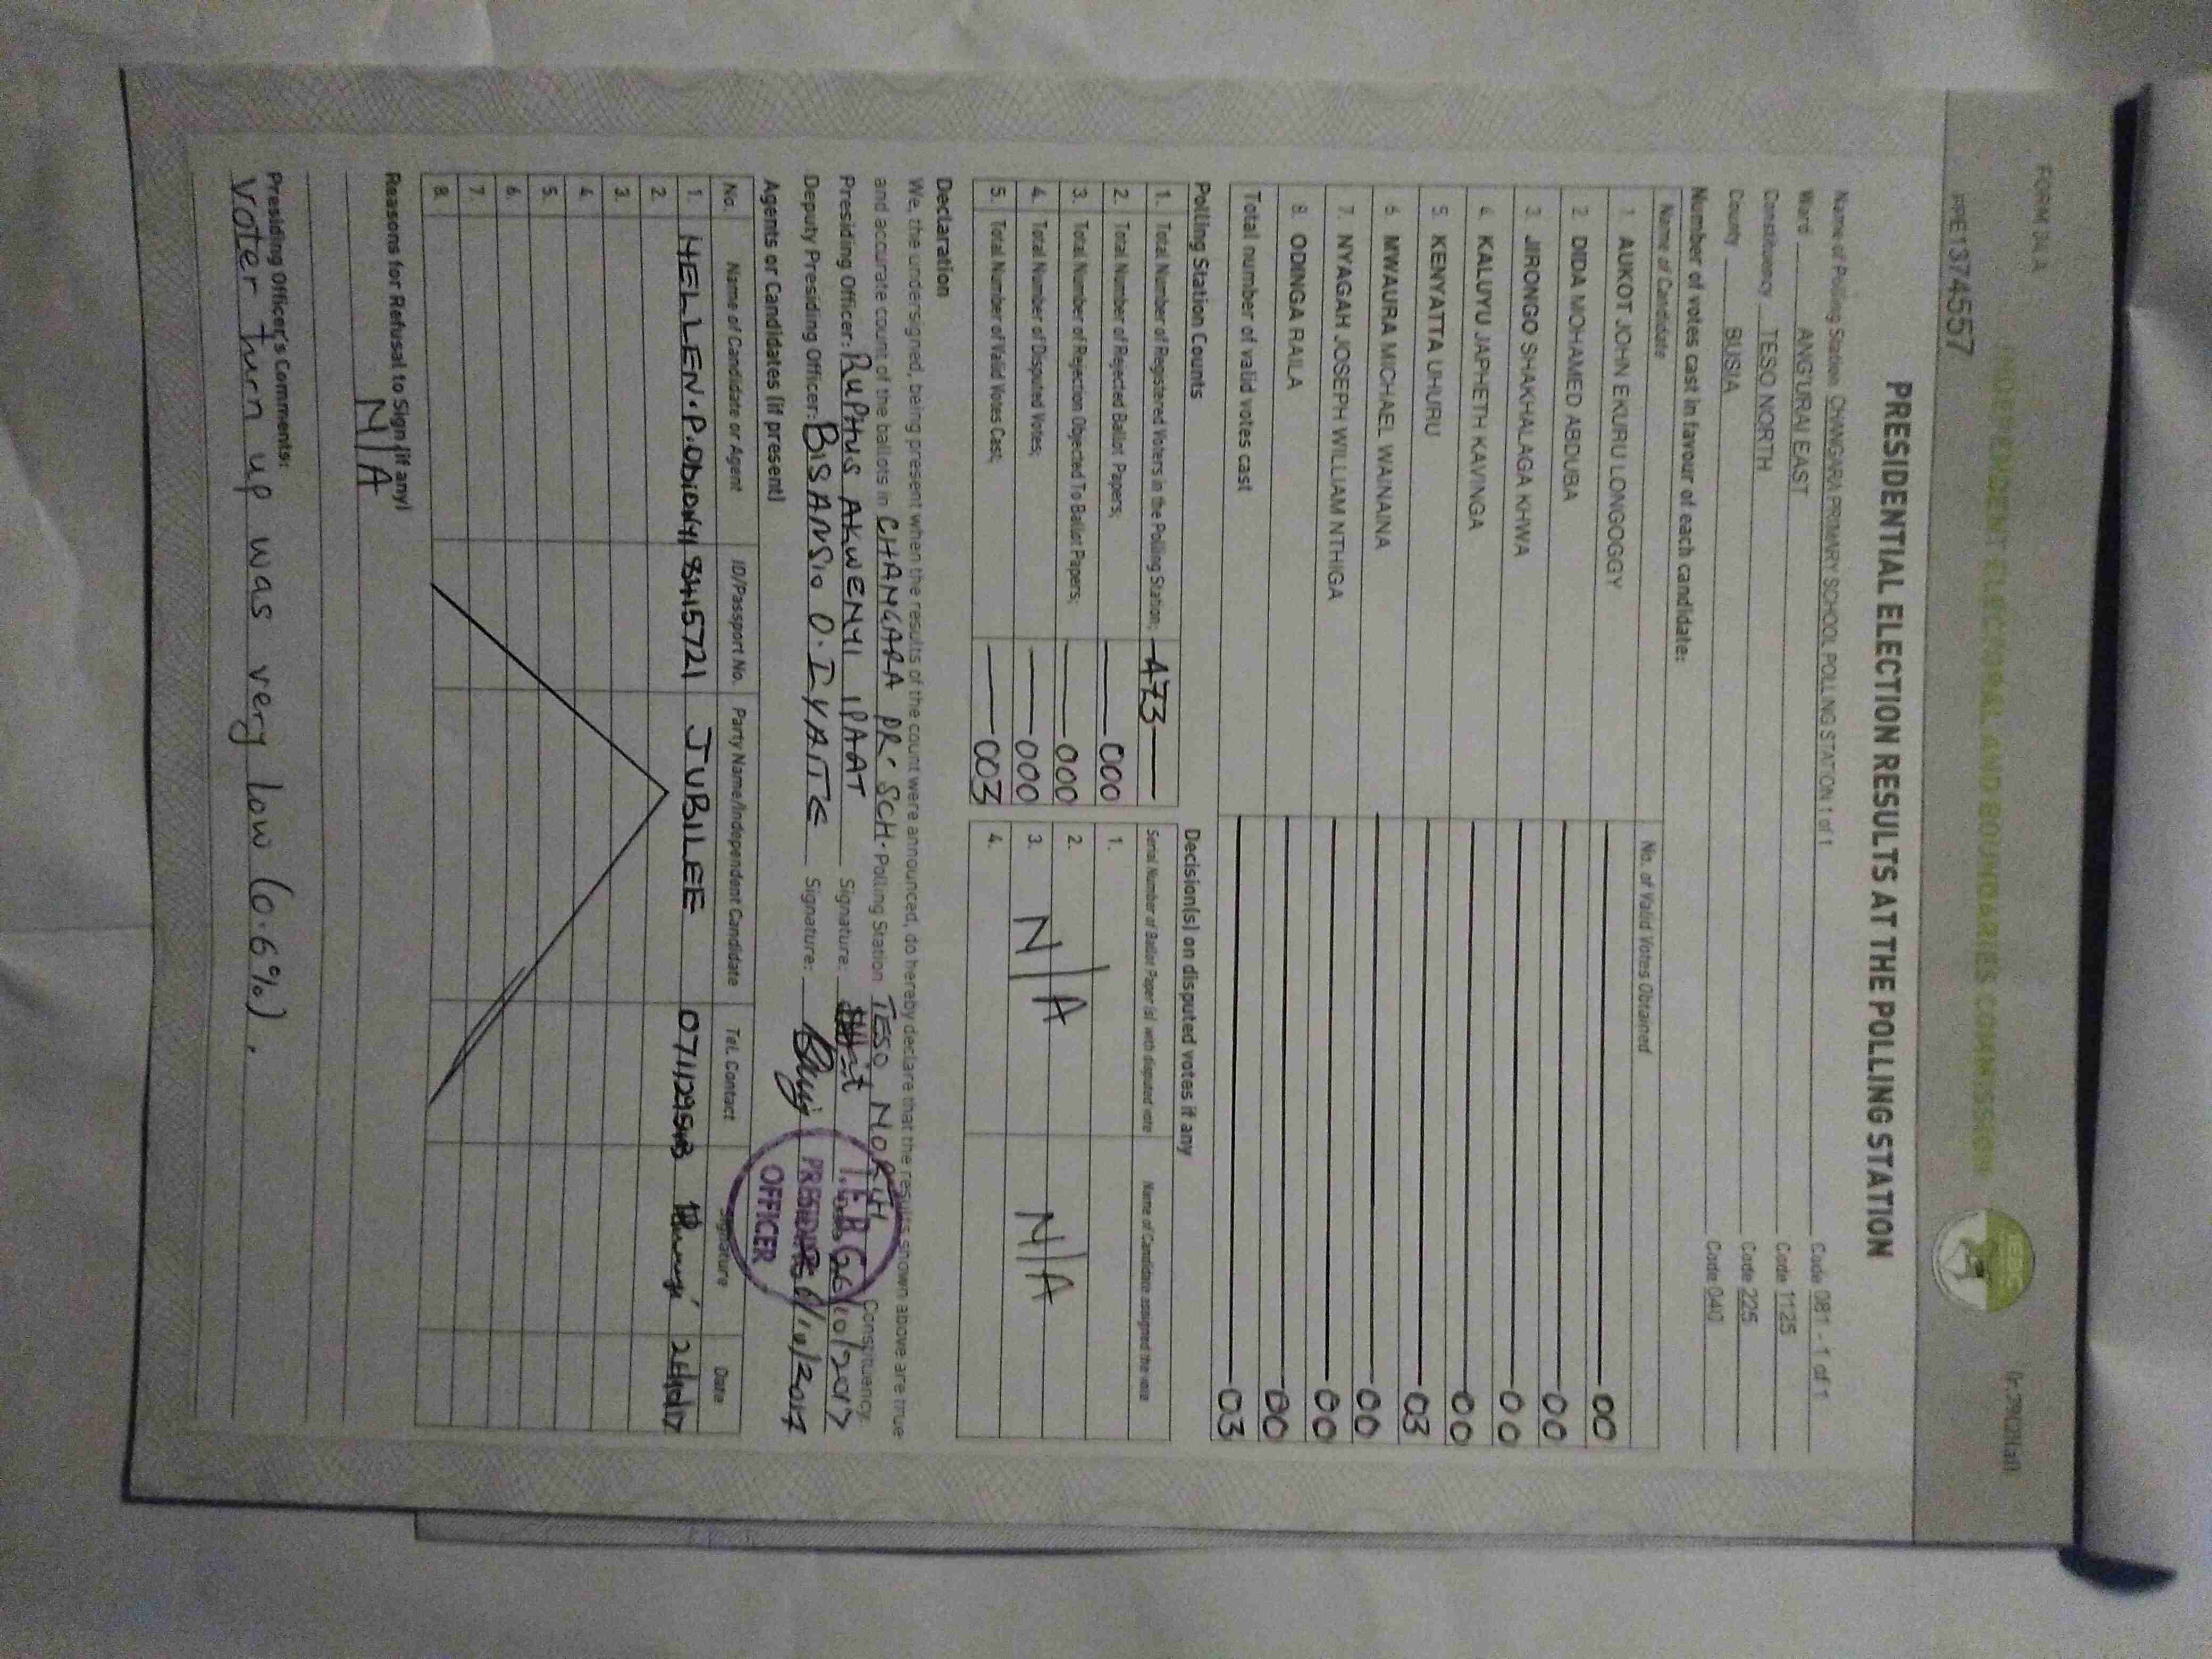 FORM 34 A
INDEPENDENT ELECTORAL AND BOUNDARIES COMMISSION
PPE1374557
IEBC
PRESIDENTIAL ELECTION RESULTS AT THE POLLING STATION
Name of Polling Station CHANGARA PRIMARY SCHOOL POLLING STATION 1 of 1 Code 081 - 1 of 1
Ward ANG'URAI EAST Code 1125
Constituency TESO NORTH Code 225
County BUSIA Code 040
Number of votes cast in favour of each candidate:
Name of Candidate No. of Valid Votes Obtained
1. AUKOT JOHN EKURU LONGOGGY 00
2. DIDA MOHAMED ABDUBA 00
3. JIRONGO SHAKHALAGA KHWA 00
4. KALUYU JAPHETH KAVINGA 00
5. KENYATTA UHURU 03
6. MWAURA MICHAEL WAINAINA 00
7. NYAGAH JOSEPH WILLIAM NTHIGA 00
8. ODINGA RAILA 00
Total number of valid votes cast 03
Polling Station Counts
1. Total Number of Registered Voters in the Polling Station; 473
2. Total Number of Rejected Ballot Papers; 000
3. Total Number of Rejection Objected To Ballot Papers; 000
4. Total Number of Disputed Votes; 000
5. Total Number of Valid Votes Cast; 003
Decision(s) on disputed votes if any
Serial Number of Ballot Paper (s) with disputed vote Name of Candidate assigned the vote
1.
2.
3. N/A N/A
4.
Declaration
We, the undersigned, being present when the results of the count were announced, do hereby declare that the results shown above are true
and accurate count of the ballots in CHANGARA PR. SCH. Polling Station TESO NORTH Constituency.
Presiding Officer: RUPHUS AKWENYI IPAAT Signature: 26/10/2017
Deputy Presiding Officer: BISANSIO O. Signature: /10/2017
I.E.B.C
PRESIDING
OFFICER
Agents or Candidates (if present)
No. Name of Candidate or Agent ID/Passport No. Party Name/Independent Candidate Tel. Contact Signature Date
1. HELLEN.P. 8415721 JUBILEE 26/10/17
2.
3.
4.
5.
6.
7.
8.
Reasons for Refusal to Sign (if any)
N/A
Presiding Officer's Comments:
Voter turn up was very low (0.6%).